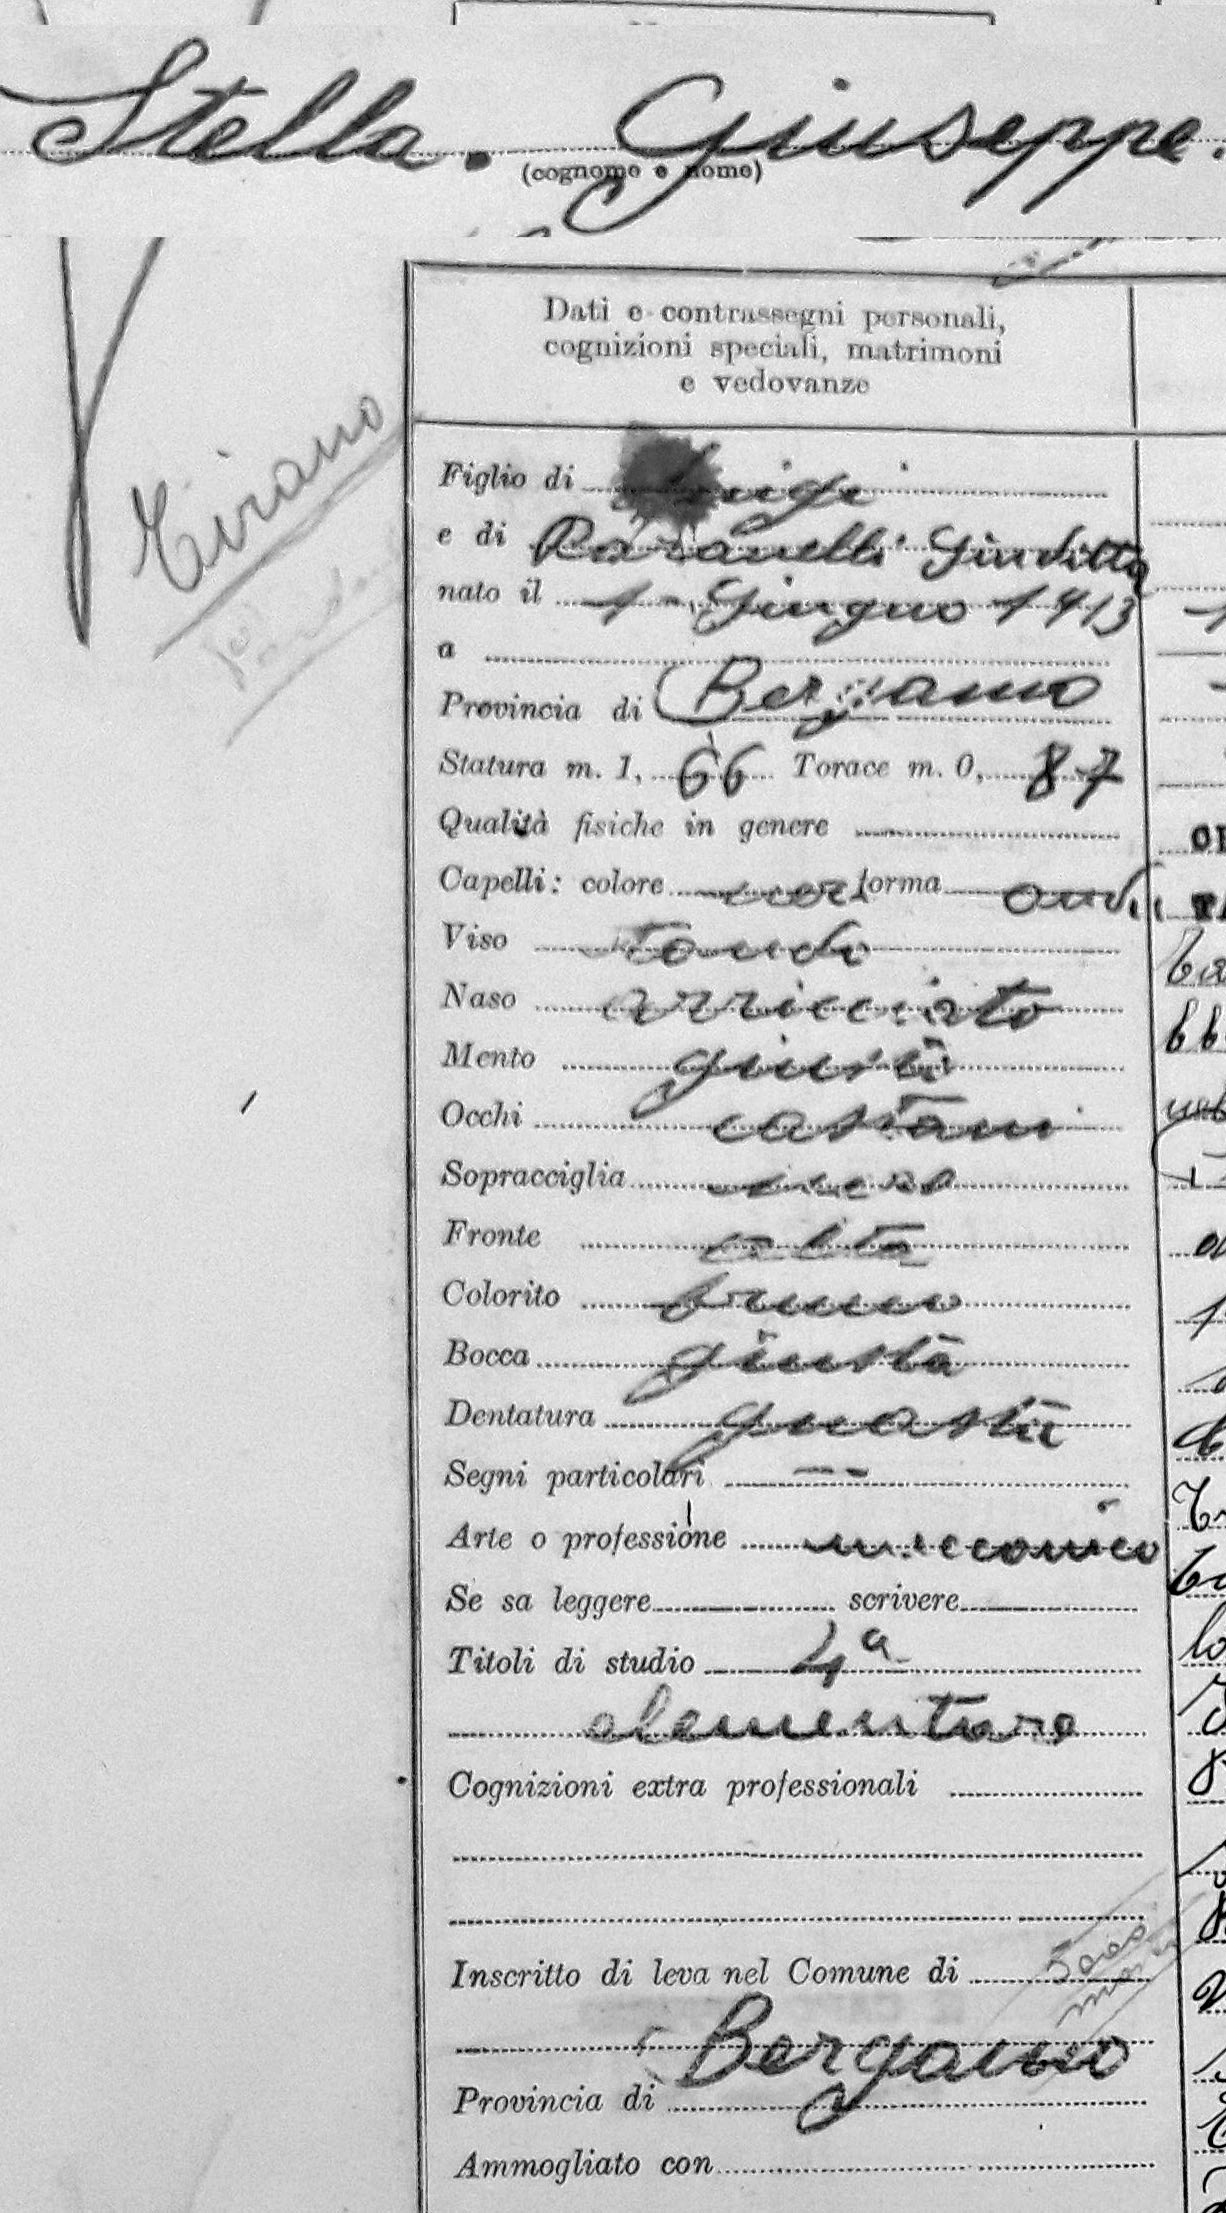 Stella. Giuseppe.
(cognome e nome)
Tirano
Dati e contrassegni personali,
cognizioni speciali, matrimoni
e vedovanze
Figlio di Luigi
e di Giuditta
nato il 1 - Giugno 1913
a
Provincia di Bergamo
Statura m. 1, 66 Torace m. 0, 87
Qualità fisiche in genere
Capelli: colore neri forma ondu
Viso tondo
Naso arricciato
Mento giusto
Occhi castani
Sopracciglia nere
Fronte alta
Colorito bruno
Bocca giusta
Dentatura guasta
Segni particolari --
Arte o professione meccanico
Se sa leggere scrivere
Titoli di studio 4a
elementare
Cognizioni extra professionali
Inscritto di leva nel Comune di
Bergamo
Provincia di
Ammogliato con